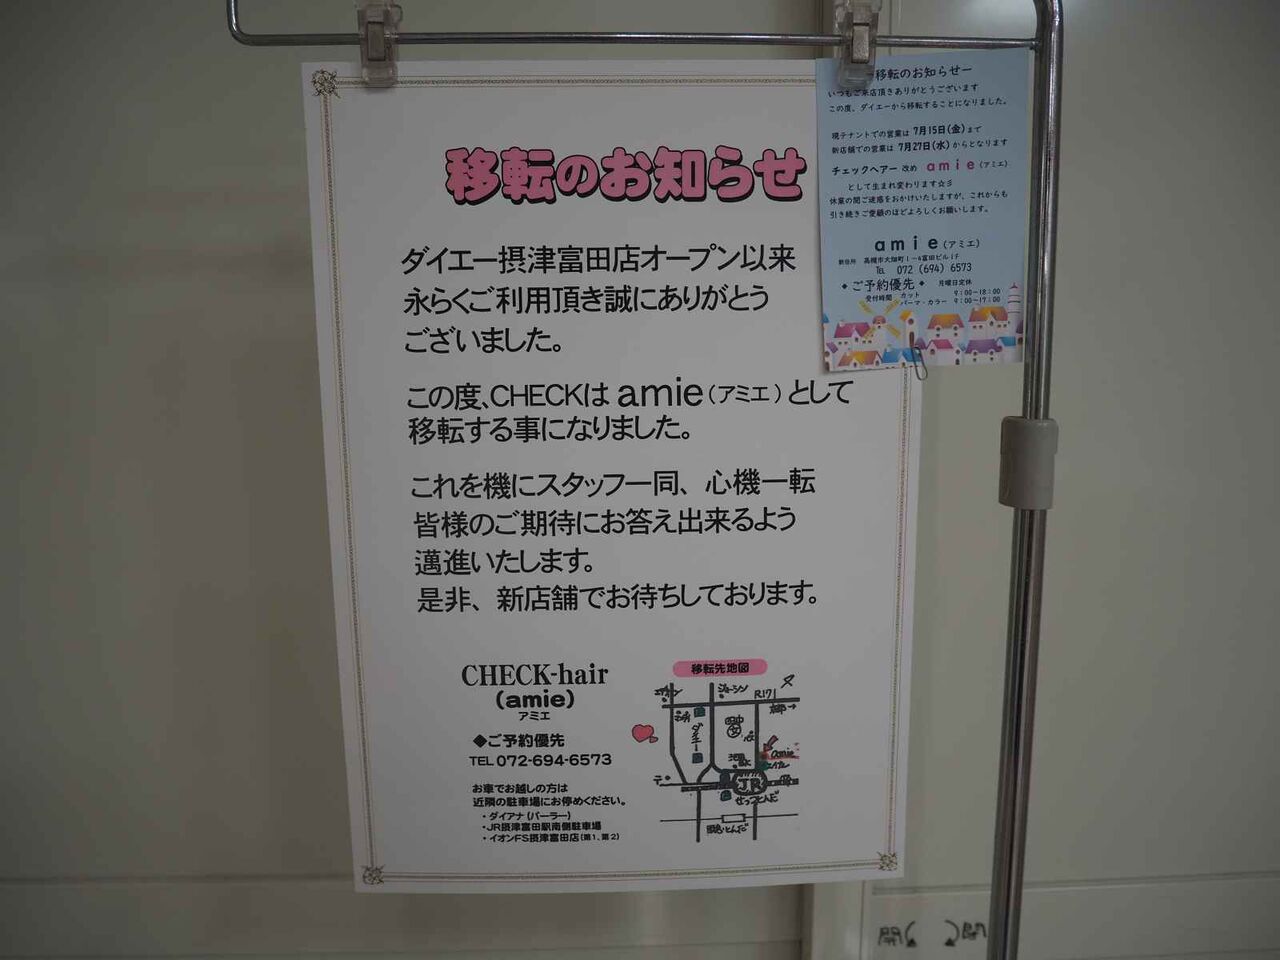 移転のお知らせ
ダイエー摂津富田店オープン以来
永らくご利用頂き誠にありがとう
ございました。
この度、CHECKは amie(アミエ)として
移転する事になりました。
これを機にスタッフ一同、心機一転
皆様のご期待にお答え出来るよう
邁進いたします。
是非、新店舗でお待ちしております。
CHECK-hair
(amie)
アミエ
◆ご予約優先
TEL 072-694-6573
お車でお越しの方は
近隣の駐車場にお停めください。
・ダイアナ(パーラー)
・JR摂津富田駅南側駐車場
・イオンFS摂津富田店(第1、第2)
移転先地図
ジョーシン
R171
ダイエー
amie
JR
せっつとんだ
移転のお知らせー
いつもご来店頂きありがとうございます
この度、ダイエーから移転することになりました。
現テナントでの営業は 7月15日(金)まで
新店舗での営業は 7月27日(水)からとなります
チェックヘアー 改め amie(アミエ)
として生まれ変わります☆彡
休業の間ご迷惑をおかけいたしますが、これからも
引き続きご愛顧のほどよろしくお願いします。
amie(アミエ)
新住所 高槻市大畑町1−4富田ビル1F
TEL 072(694)6573
◆ご予約優先◆ 月曜日定休
受付時間 カット 9:00〜18:00
パーマ・カラー 9:00〜17:00
開 閉